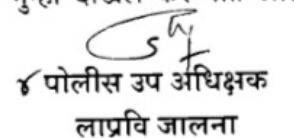 पोलीस उप अधिक्षक
लाप्रवि जालना